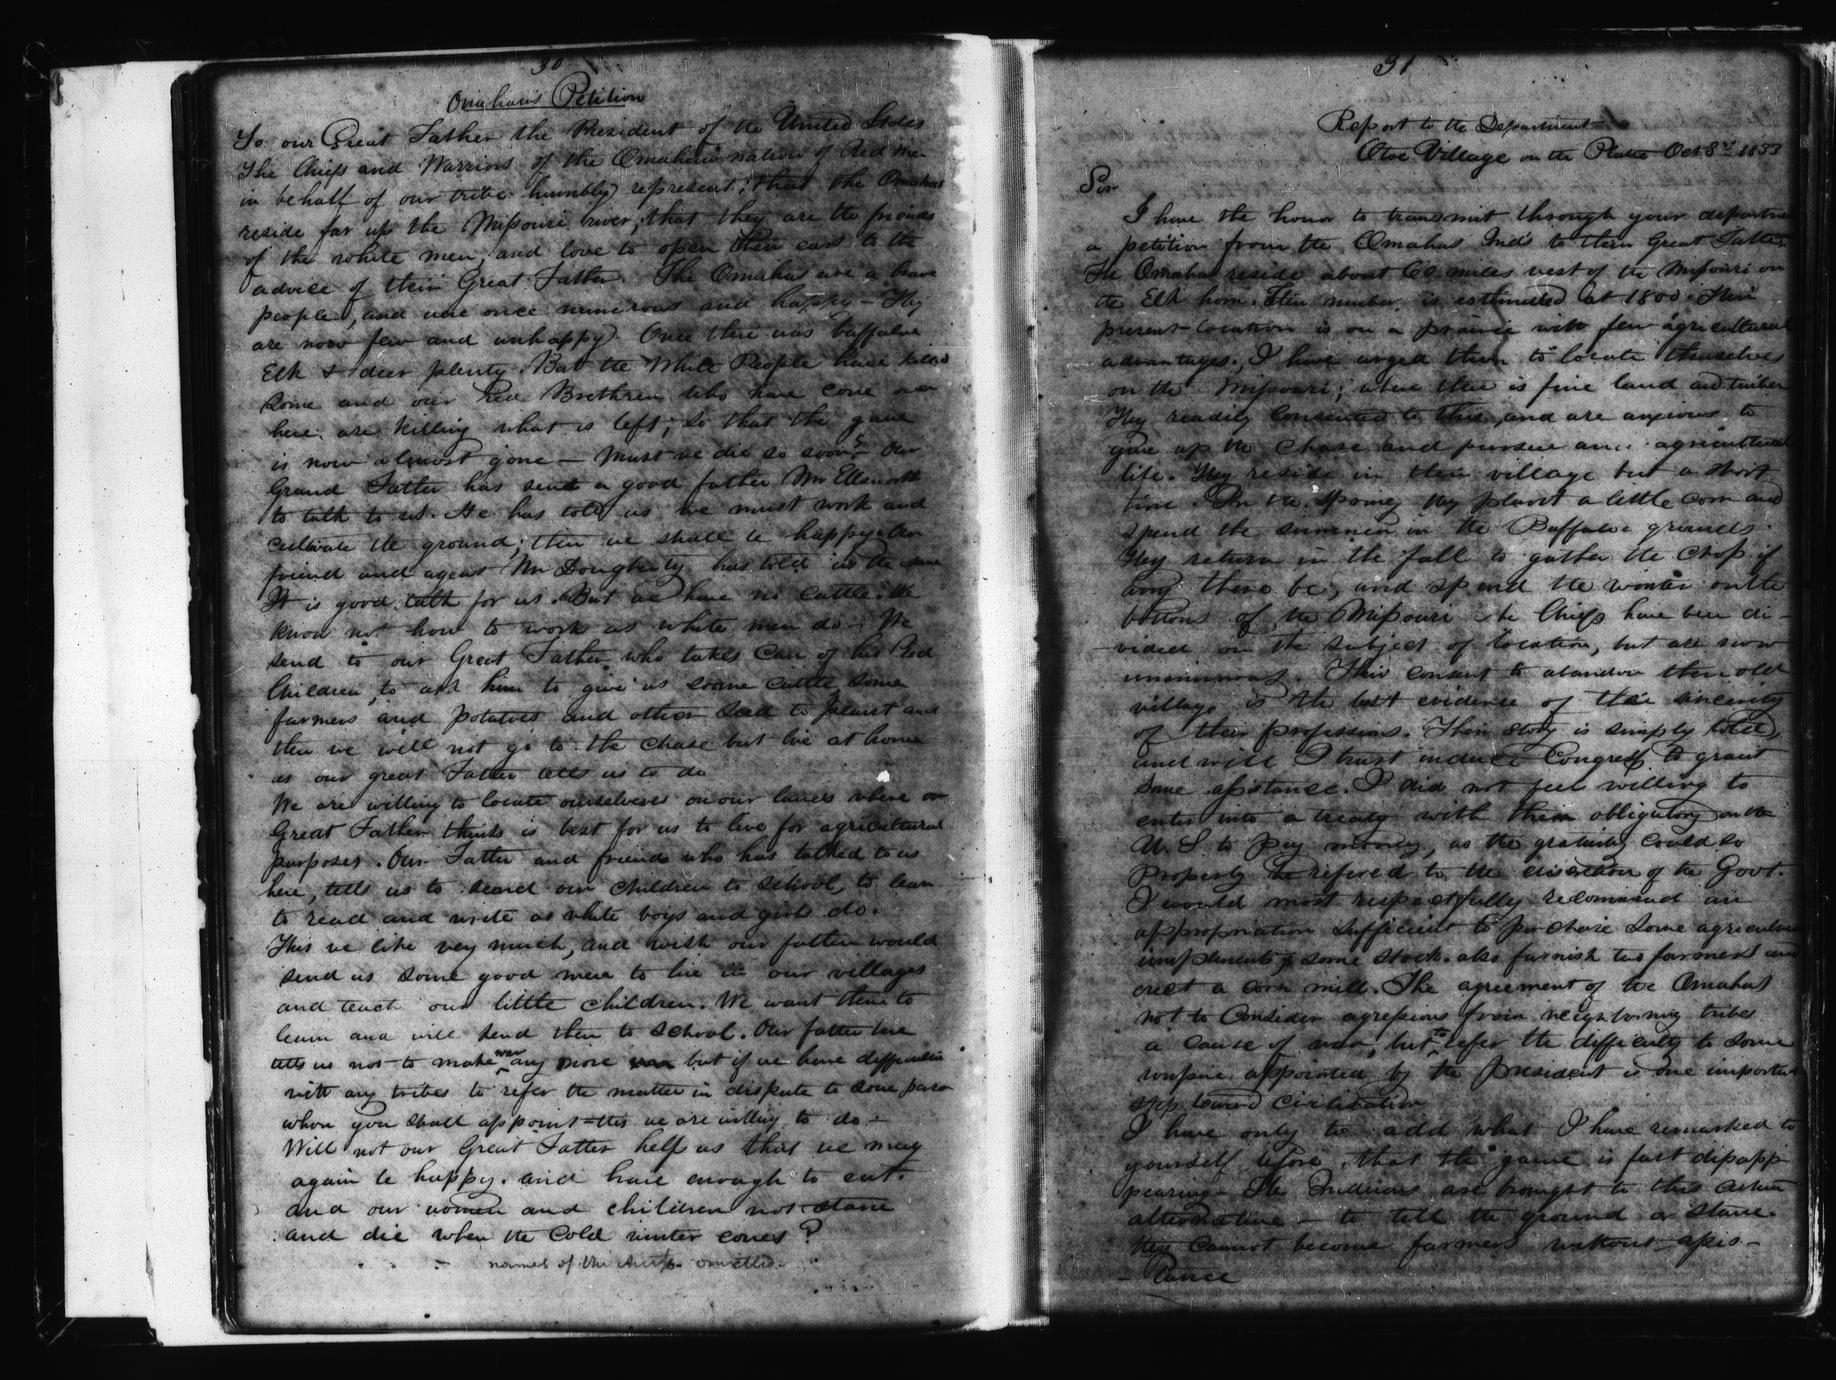 30
Omahaw's Petition
To our Great Father the President of the United States
The Chiefs and Warriors of the Omahaw nation of Red men
in behalf of our tribe humbly represent; that the Omahas
reside far up the Missouri river; that they are the friends
of the white men, and love to open their ears to the
advice of their Great Father. The Omahas are a brave
people, and were once numerous and happy – They
are now few and unhappy. Once there was buffaloe
Elk & deer plenty. But the White People have killed
some and our Red Brethren who have come over
here are killing what is left; so that the game
is now almost gone – Must we die so soon? Our
Grand Father has sent a good father Mr Ellsworth
to talk to us. He has told us we must work and
cultivate the ground; then we shall be happy. Our
friend and agent Mr Dougherty has told us the same
It is good talk for us. But we have no cattle. We
know not how to work as white men do – We
send to our Great Father who takes care of his Red
Children, to ask him to give us some cattle, some
farmers, and potatoes and other seed to plant and
then we will not go to the chase but live at home
as our great Father tells us to do
We are willing to locate ourselves on our lands where our
Great Father thinks is best for us to live for agricultural
purposes. Our Father and friend who has talked to us
here, tells us to send our children to school, to learn
to read and write as white boys and girls do.
This we like very much, and wish our father would
send us some good men to live in our villages
and teach our little children. We want them to
learn and will send them to school. Our father here
tells us not to make war any more but if we have difficulties
with any tribes to refer the matter in dispute to some person
whom you shall appoint – this we are willing to do –
Will not our Great Father help us that we may
again be happy. and have enough to eat.
and our women and children not starve
and die when the cold winter comes?
names of the chiefs omitted –
31
Report to the Department –
Otoe Village on the Platte Oct 8th 1833
Sir
I have the honor to transmit through your department
a petition from the Omahas Inds to their Great Father.
The Omahas reside about 60 miles west of the Missouri on
the Elk horn. Their number is estimated at 1800. Their
present location is on a prairie with few agricultural
advantages. I have urged them to locate themselves
on the Missouri; where there is fine land and timber
They readily consented to this, and are anxious to
give up the chase and pursue an agricultural
life. They reside in their village but a short
time. In the spring they plant a little corn and
spend the summer on the Buffaloe grounds.
They return in the fall to gather the crop if
any there be, and spend the winter on the
bottoms of the Missouri. The Chiefs have been di-
vided on the subject of location, but are now
unanimous. Their consent to abandon their old
village is the best evidence of the sincerity
of their professions. Their story is simply told,
and will I trust induce Congress to grant
some assistance. I did not feel willing to
enter into a treaty with them obligatory on the
U. S to pay money, as the gratuity could so
properly be refered to the discretion of the Govt.
I would most respectfully recommend an
appropriation sufficient to purchase some agricultural
implements, & some stock. also furnish two farmers and
erect a corn mill. The agreement of the Omahas
not to consider agressions from neighboring tribes
a cause of war, but to refer the difficulty to some
umpire appointed by the President is one important
step toward civilization
I have only to add what I have remarked to
yourself before, that the game is fast disapp
pearing – The Indians are brought to this
alternative – to till the ground or starve.
they cannot become farmers without assis-
– tance